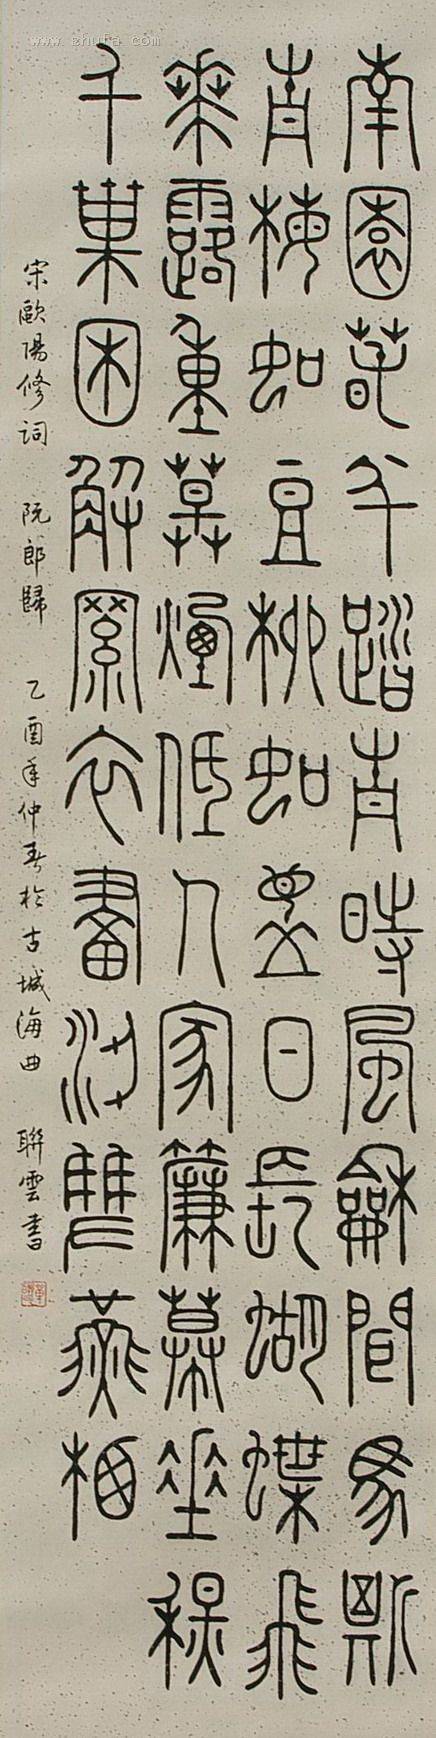 www.zhuta.com
南園春半踏青時風龢間馬斯
青梅如豆柳如眉日長蝴蝶飛
華露重草煙低人家簾幕垂秋
千菓困解羅衣畫梁雙燕栖
宋歐陽修詞 阮郎歸 乙酉年仲春於古城海曲 聯雲書